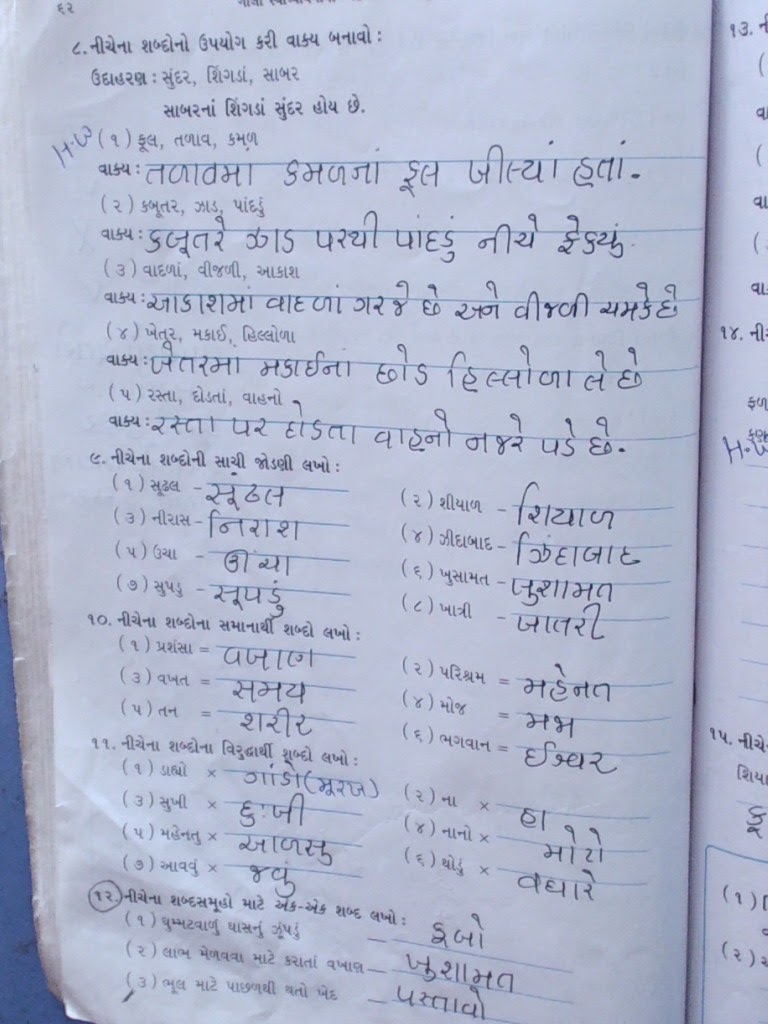 ૬૨
૮. નીચેના શબ્દોનો ઉપયોગ કરી વાક્ય બનાવો :
ઉદાહરણ : સુંદર, શિંગડાં, સાબર
સાબરનાં શિંગડાં સુંદર હોય છે.
H.W (૧) ફૂલ, તળાવ, કમળ
વાક્ય : તળાવમાં કમળનાં ફૂલ ખીલ્યાં હતાં.
(૨) કબૂતર, ઝાડ, પાંદડું
વાક્ય : કબૂતરે ઝાડ પરથી પાંદડું નીચે ફેંક્યું.
(૩) વાદળાં, વીજળી, આકાશ
વાક્ય : આકાશમાં વાદળાં ગરજે છે અને વીજળી ચમકે છે
(૪) ખેતર, મકાઈ, હિલ્લોળા
વાક્ય : ખેતરમા મકાઈનાં છોડ હિલ્લોળા લે છે
(૫) રસ્તા, દોડતાં, વાહનો
વાક્ય : રસ્તા પર દોડતા વાહનો નજરે પડે છે.
૯. નીચેના શબ્દોની સાચી જોડણી લખો :
(૧) સૂઢલ - સૂંઢલ (૨) શીયાળ - શિયાળ
(૩) નીરાસ - નિરાશ (૪) ઝીદાબાદ - ઝિંદાબાદ
(૫) ઉચા - ઊંચા (૬) ખુસામત - ખુશામત
(૭) સુપડુ - સૂપડું (૮) ખાત્રી - ખાતરી
૧૦. નીચેના શબ્દોના સમાનાર્થી શબ્દો લખો :
(૧) પ્રશંસા = વખાણ (૨) પરિશ્રમ = મહેનત
(૩) વખત = સમય (૪) મોજ = મજા
(૫) તન = શરીર (૬) ભગવાન = ઈશ્વર
૧૧. નીચેના શબ્દોના વિરુદ્ધાર્થી શબ્દો લખો :
(૧) ડાહ્યો × ગાંડો (મૂરખ) (૨) ના × હા
(૩) સુખી × દુઃખી (૪) નાનો × મોટો
(૫) મહેનતુ × આળસુ (૬) થોડું × વધારે
(૭) આવવું × જવું
૧૨. નીચેના શબ્દસમૂહો માટે એક-એક શબ્દ લખો :
(૧) ઘુમ્મટવાળું ઘાસનું ઝૂંપડું - કૂબો
(૨) લાભ મેળવવા માટે કરાતાં વખાણ - ખુશામત
(૩) ભૂલ માટે પાછળથી થતો ખેદ - પસ્તાવો
૧૩. ની
(
(
(
૧૪. નીચે
ફળ
H.W
૧૫. નીચે
શિયા
(૧)
(૨)